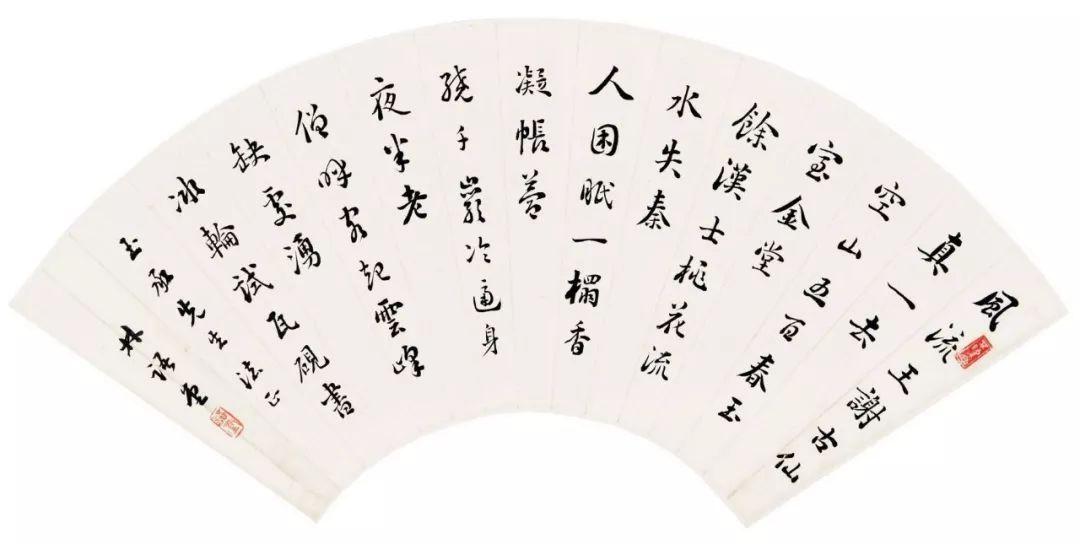 風流王謝古仙
真一去
空山五百春玉
室金堂
餘漢士桃花流
水失秦
人困眠一榻香
凝帳夢
繞千巖冷逼身
夜半老
僧呼客起雲峰
缺處湧
冰輪試瓦硯書
玉先生法正
林語堂